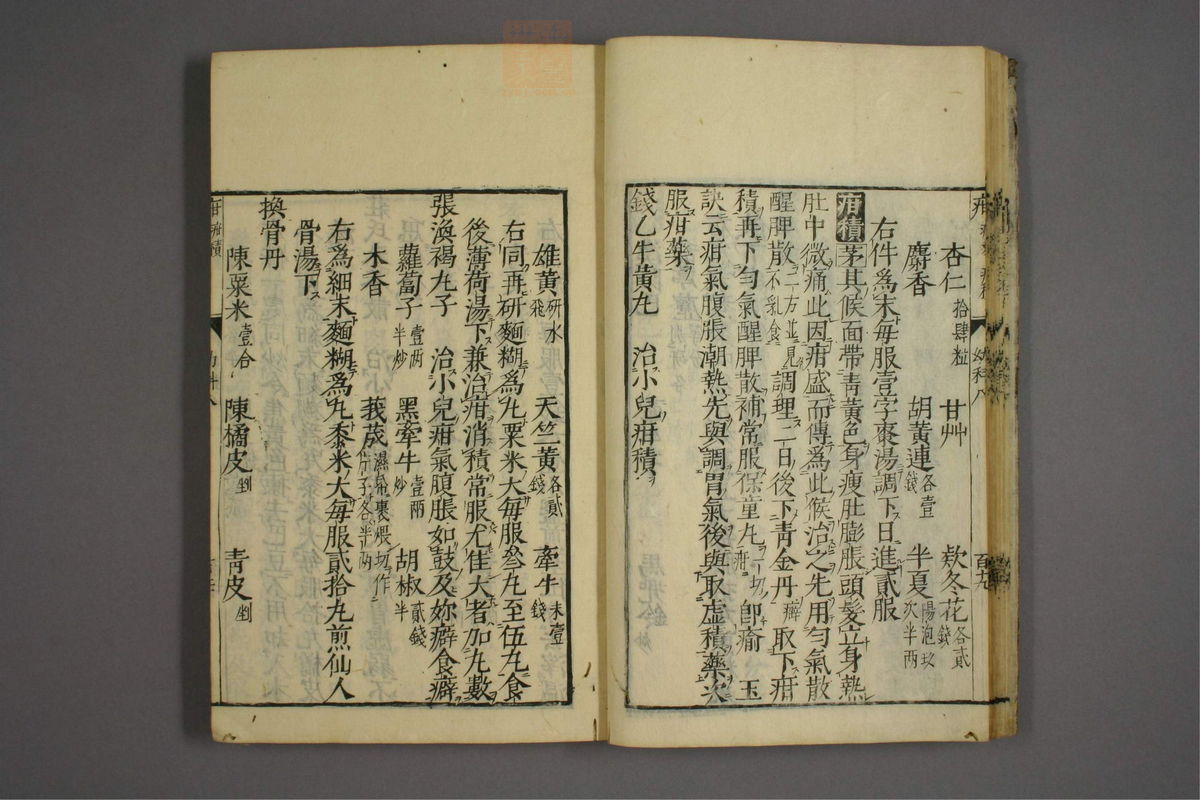 杏仁拾肆粒 甘艸 欵冬花各貳錢
麝香 胡黃連各壹錢 半夏湯泡玖次半兩
右件爲末每服壹字棗湯調下日進貳服
疳積茅其候面帶青黃色身瘦肚膨脹頭髮立身熱
肚中微痛此因疳盛而傳爲此候治之先用勻氣散
醒脾散二方並見不乳食調理一日後下青金丹癖取下疳
積再下勻氣醒脾散補常服保童丸一切疳即瘉 玉
訣云疳氣腹脹潮熱先與調胃氣後與取虛積藥次
服疳藥
錢乙牛黃丸 治小兒疳積
雄黃研水飛 天竺黃各貳錢 牽牛末壹錢
右同再研麵糊爲丸粟米大每服叄丸至伍丸食
後薄荷湯下兼治疳消積常服尤佳大者加丸數
張渙褐丸子 治小兒疳氣腹脹如鼓及妳癖食癖
蘿蔔子壹兩半炒 黑牽牛壹兩炒 胡椒貳錢半
木香 莪茂濕帋裹煨切作片子各半兩
右爲細末麵糊爲丸黍米大每服貳拾丸煎仙人
骨湯下
換骨丹
陳粟米壹合 陳橘皮剉 青皮剉